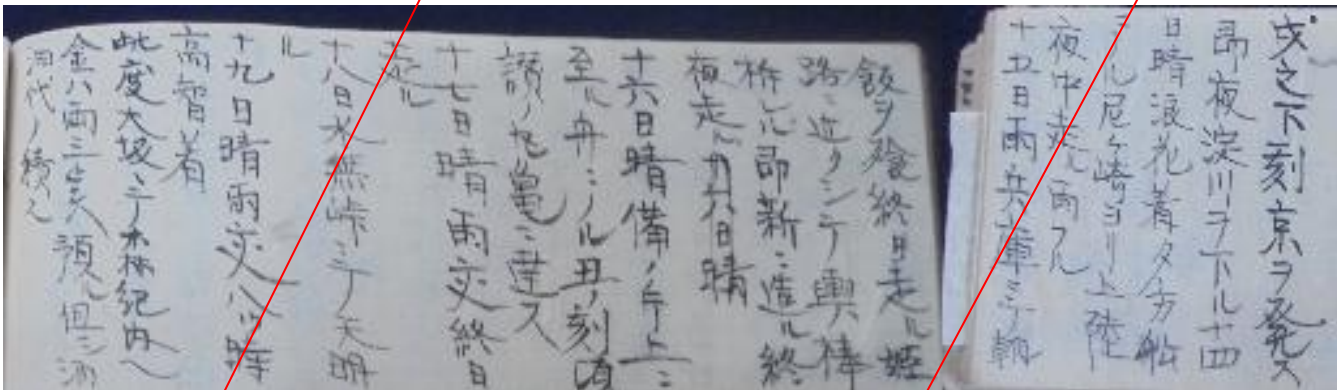 戌之下刻京ヲ発ス
即夜淀川ヲ下ル十四
日晴浪花着夕方船
ニノル尼ヶ崎ヨリ上陸
夜中走ル雨フル
十五日雨兵庫ニテ朝
飯ヲ喰終日走ル姫
路ニ近クシテ輿ノ棒
折レル即新ニ造ル終
夜走ル
十六日晴備ノ片上ニ
至ル舟ニノル丑ノ刻頃
讃ノ丸亀ニ達ス
十七日晴雨交終日
走ル
十八日水無峠ニテ天明
ル
十九日晴雨交八ツ時
高智着
此度大坂ニテ木林紀内ヘ
金八両三歩預ル但シ酒
代ノ續